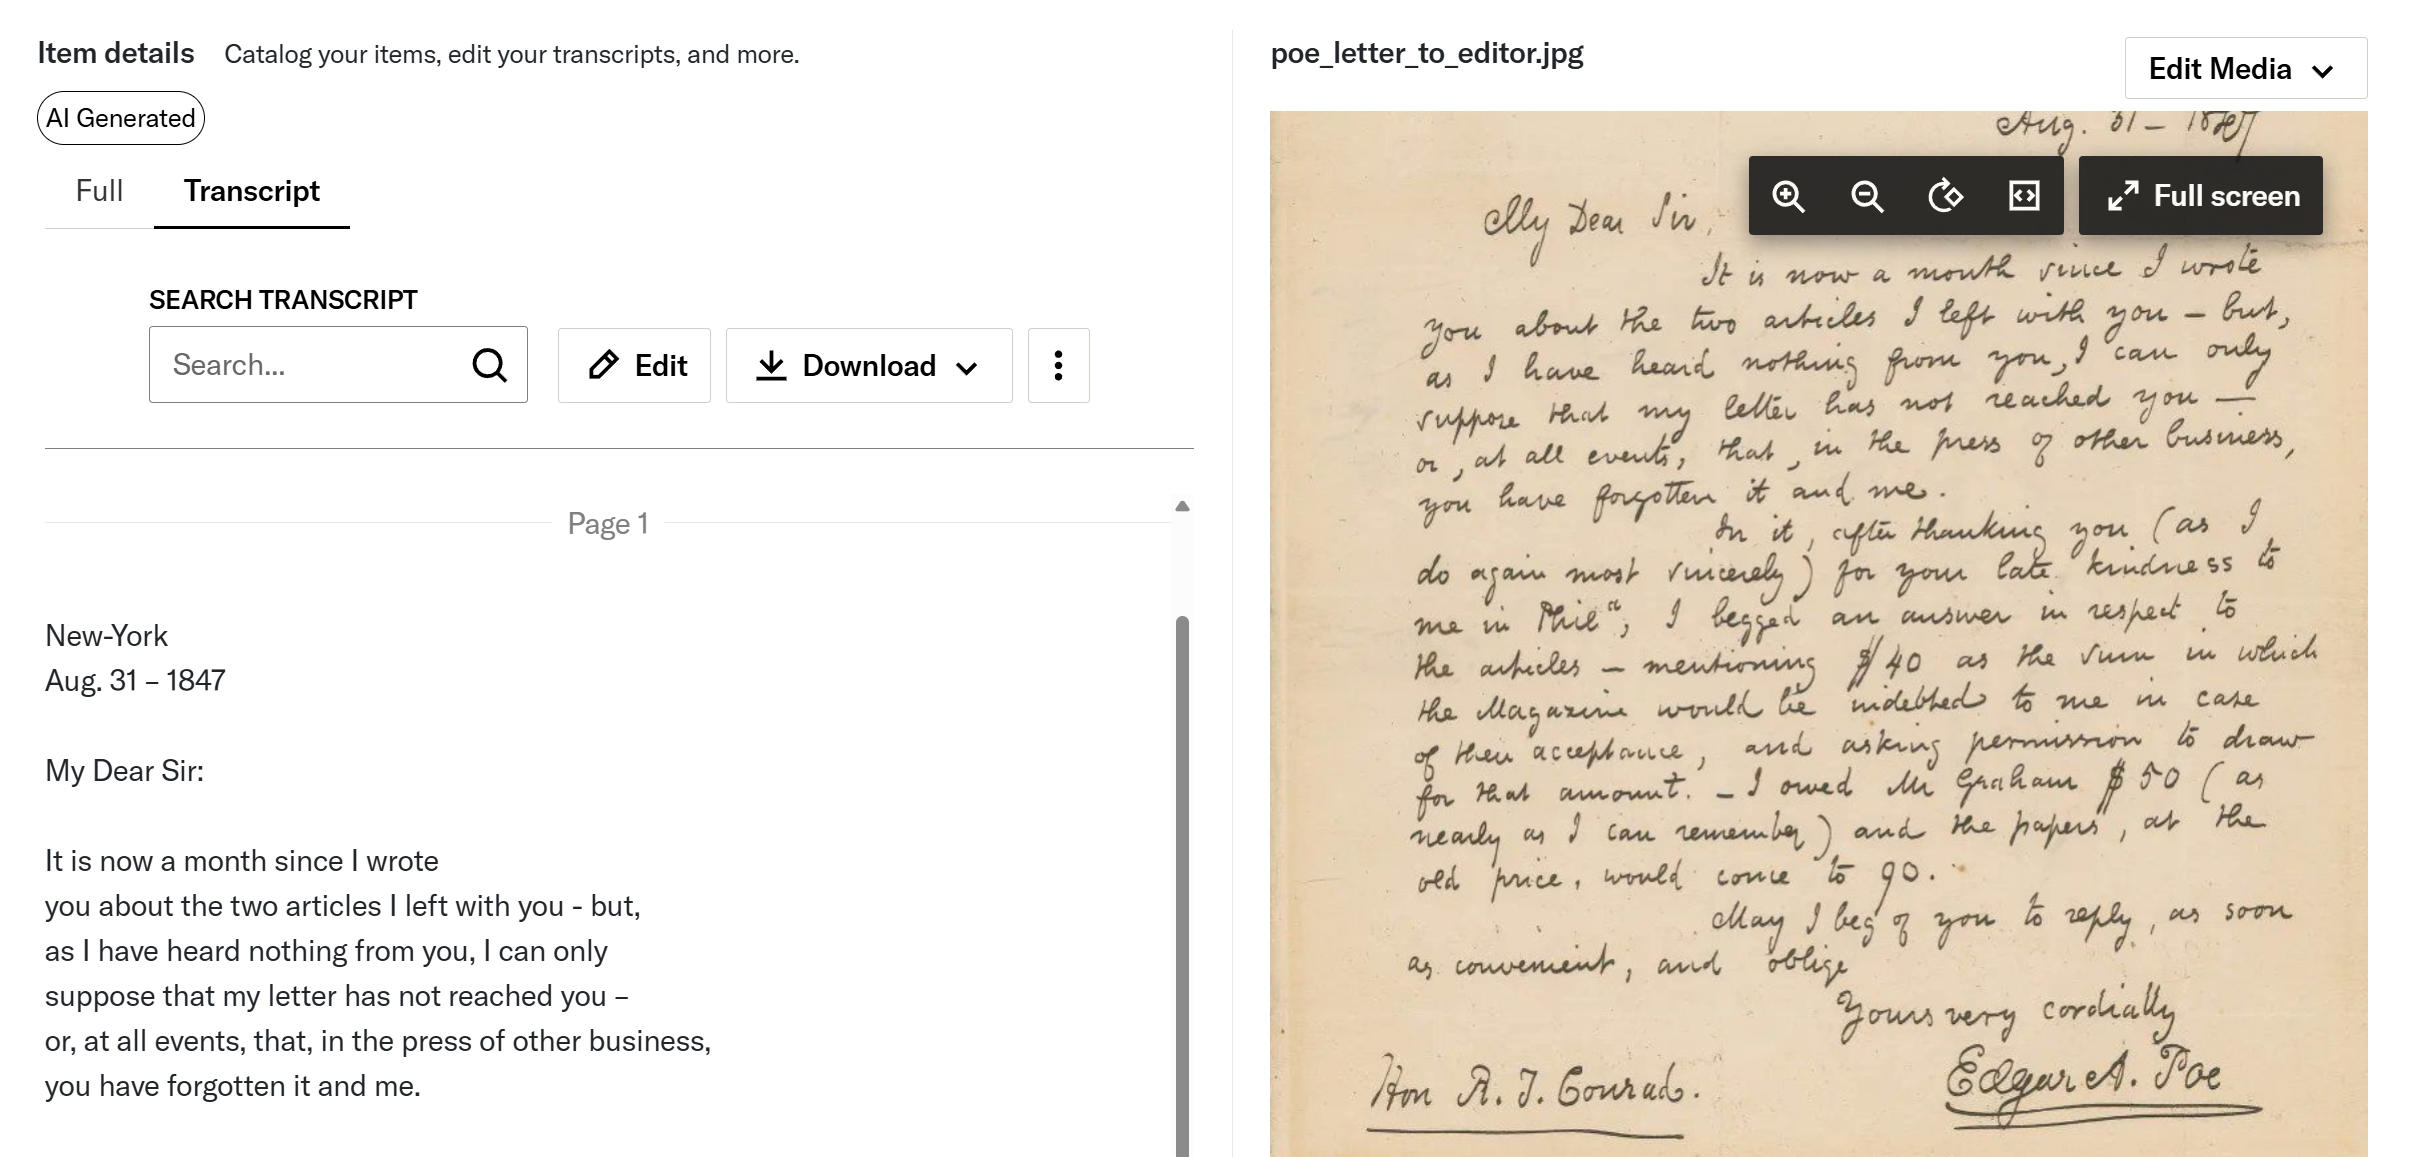 Item details Catalog your items, edit your transcripts, and more.
AI Generated
Full Transcript
SEARCH TRANSCRIPT
Search...
Edit
Download
Page 1
New-York
Aug. 31 – 1847
My Dear Sir:
It is now a month since I wrote
you about the two articles I left with you - but,
as I have heard nothing from you, I can only
suppose that my letter has not reached you –
or, at all events, that, in the press of other business,
you have forgotten it and me.
poe_letter_to_editor.jpg
Edit Media
Full screen
Aug. 31 – 1847
My Dear Sir,
It is now a month since I wrote
you about the two articles I left with you – but,
as I have heard nothing from you, I can only
suppose that my letter has not reached you —
or, at all events, that, in the press of other business,
you have forgotten it and me.
In it, after thanking you (as I
do again most sincerely) for your late kindness to
me in Phil<sup>a</sup>, I begged an answer in respect to
the articles – mentioning $40 as the sum in which
the Magazine would be indebted to me in case
of their acceptance, and asking permission to draw
for that amount. – I owed Mr Graham $50 (as
nearly as I can remember) and the papers, at the
old price, would come to 90.
May I beg of you to reply, as soon
as convenient, and oblige
Yours very cordially
Edgar A. Poe
Hon R. T. Conrad.